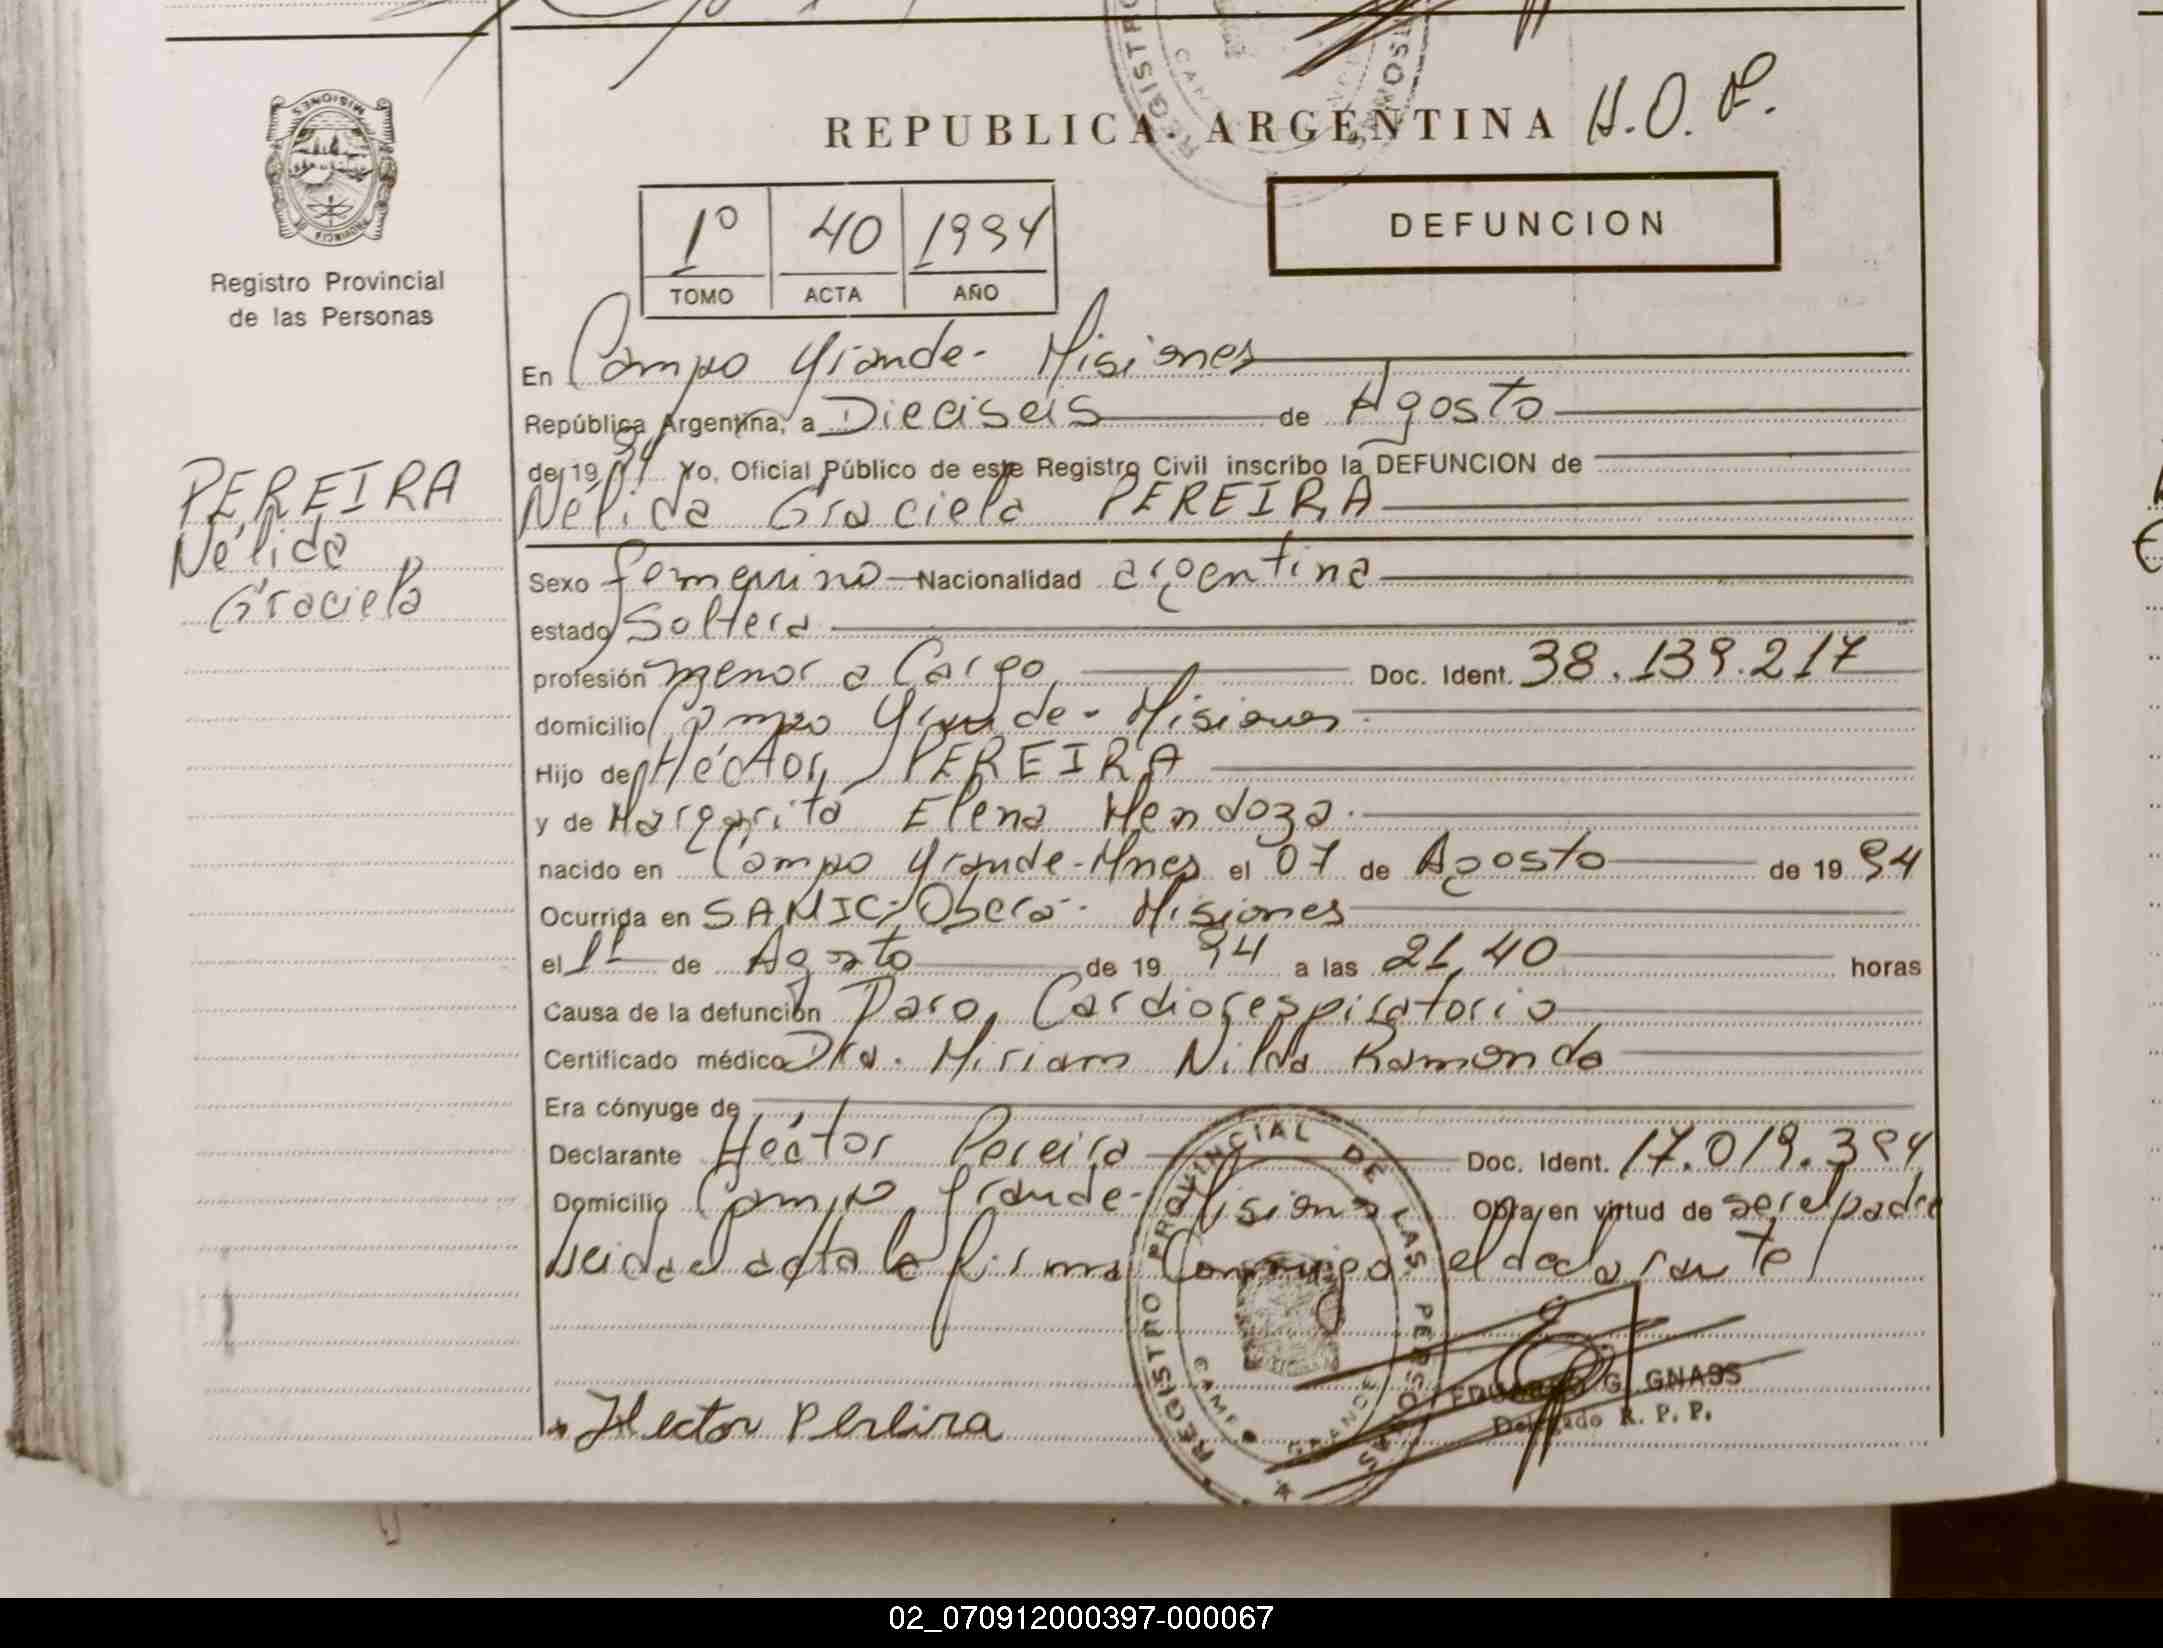 MISIONES
PROVINCIA DE
Registro Provincial
de las Personas
PEREIRA
Nélida
Graciela
REPUBLICA ARGENTINA H.O.P.
1º 40 1994
TOMO ACTA AÑO
DEFUNCION
En Campo Grande - Misiones
República Argentina, a Dieciseis de Agosto
de 19 94 Yo, Oficial Público de este Registro Civil inscribo la DEFUNCION de
Nélida Graciela PEREIRA
Sexo femenino Nacionalidad argentina
estado Soltera
profesión menor a Cargo Doc. Ident. 38.139.217
domicilio Campo Grande - Misiones
Hijo de Héctor PEREIRA
y de Margarita Elena Mendoza.
nacido en Campo Grande - Mnes el 07 de Agosto de 19 94
Ocurrida en SAMIC - Oberá - Misiones
el 11 de Agosto de 19 94 a las 21,40 horas
Causa de la defunción Paro Cardiorespiratorio
Certificado médico Dra. Miriam Nilda Ramonda
Era cónyuge de
Declarante Héctor Pereira Doc. Ident. 17.019.394
Domicilio Campo Grande - Misiones Obra en virtud de ser el padre
leida el acta la firma Conmigo el declarante
Hector Pereira
REGISTRO PROVINCIAL DE LAS PERSONAS
CAMPO GRANDE
EDUARDO G. GNASS
Delegado R. P. P.
02_070912000397-000067